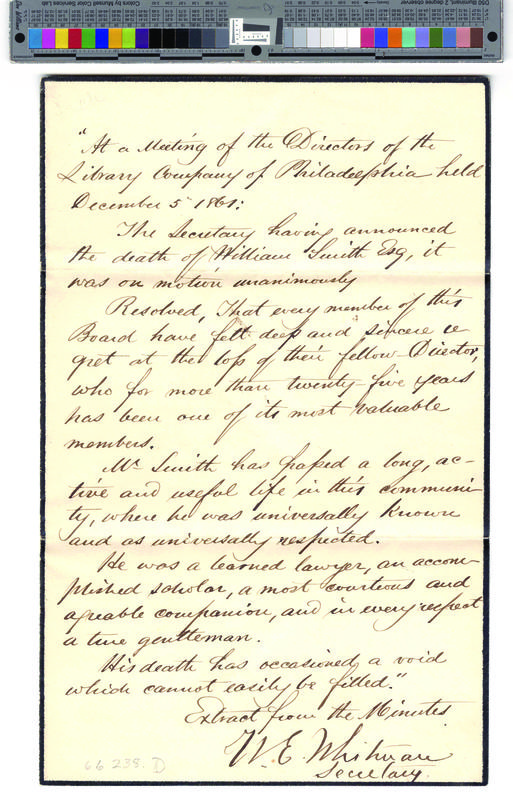 "At a Meeting of the Directors of the
Library Company of Philadelphia held
December 5 1861:
The Secretary having announced
the death of William Smith Esq, it
was on motion unanimously
Resolved, That every member of this
Board have felt deep and sincere re
gret at the loss of their fellow-Director,
who for more than twenty-five years
has been one of its most valuable
members.
Mr. Smith has passed a long, ac-
tive and useful life in this communi-
ty, where he was universally known
and as universally respected.
He was a learned lawyer, an accom-
plished scholar, a most courteous and
agreable companion, and in every respect
a true gentleman.
His death has occasioned a void
which cannot easily be filled."
Extract from the Minutes
W. E. Whitman
Secretary.
66 238. D